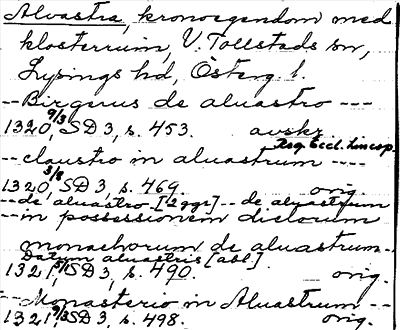 Alvastra, kronoegendom med
klosterruin, V. Tollstads sn,
Lysings hd, Österg. l.
-- Birgerus de aluastro ---
1320 9/3, SD 3, s. 453. avskr.
Reg. Eccl. Lincop.
-- claustro in aluastrum ----
1320 3/8, SD 3, s. 469. orig.
-- de aluastro [2 ggr] -- de aluastrum
-- in possessionem dictorum
monachorum de aluastrum --
Datum aluastris [abl]
1321 5/1 SD 3, s. 490. orig.
-- Monasterio in Aluastrum --
1321 9/3 SD 3, s. 498. orig.